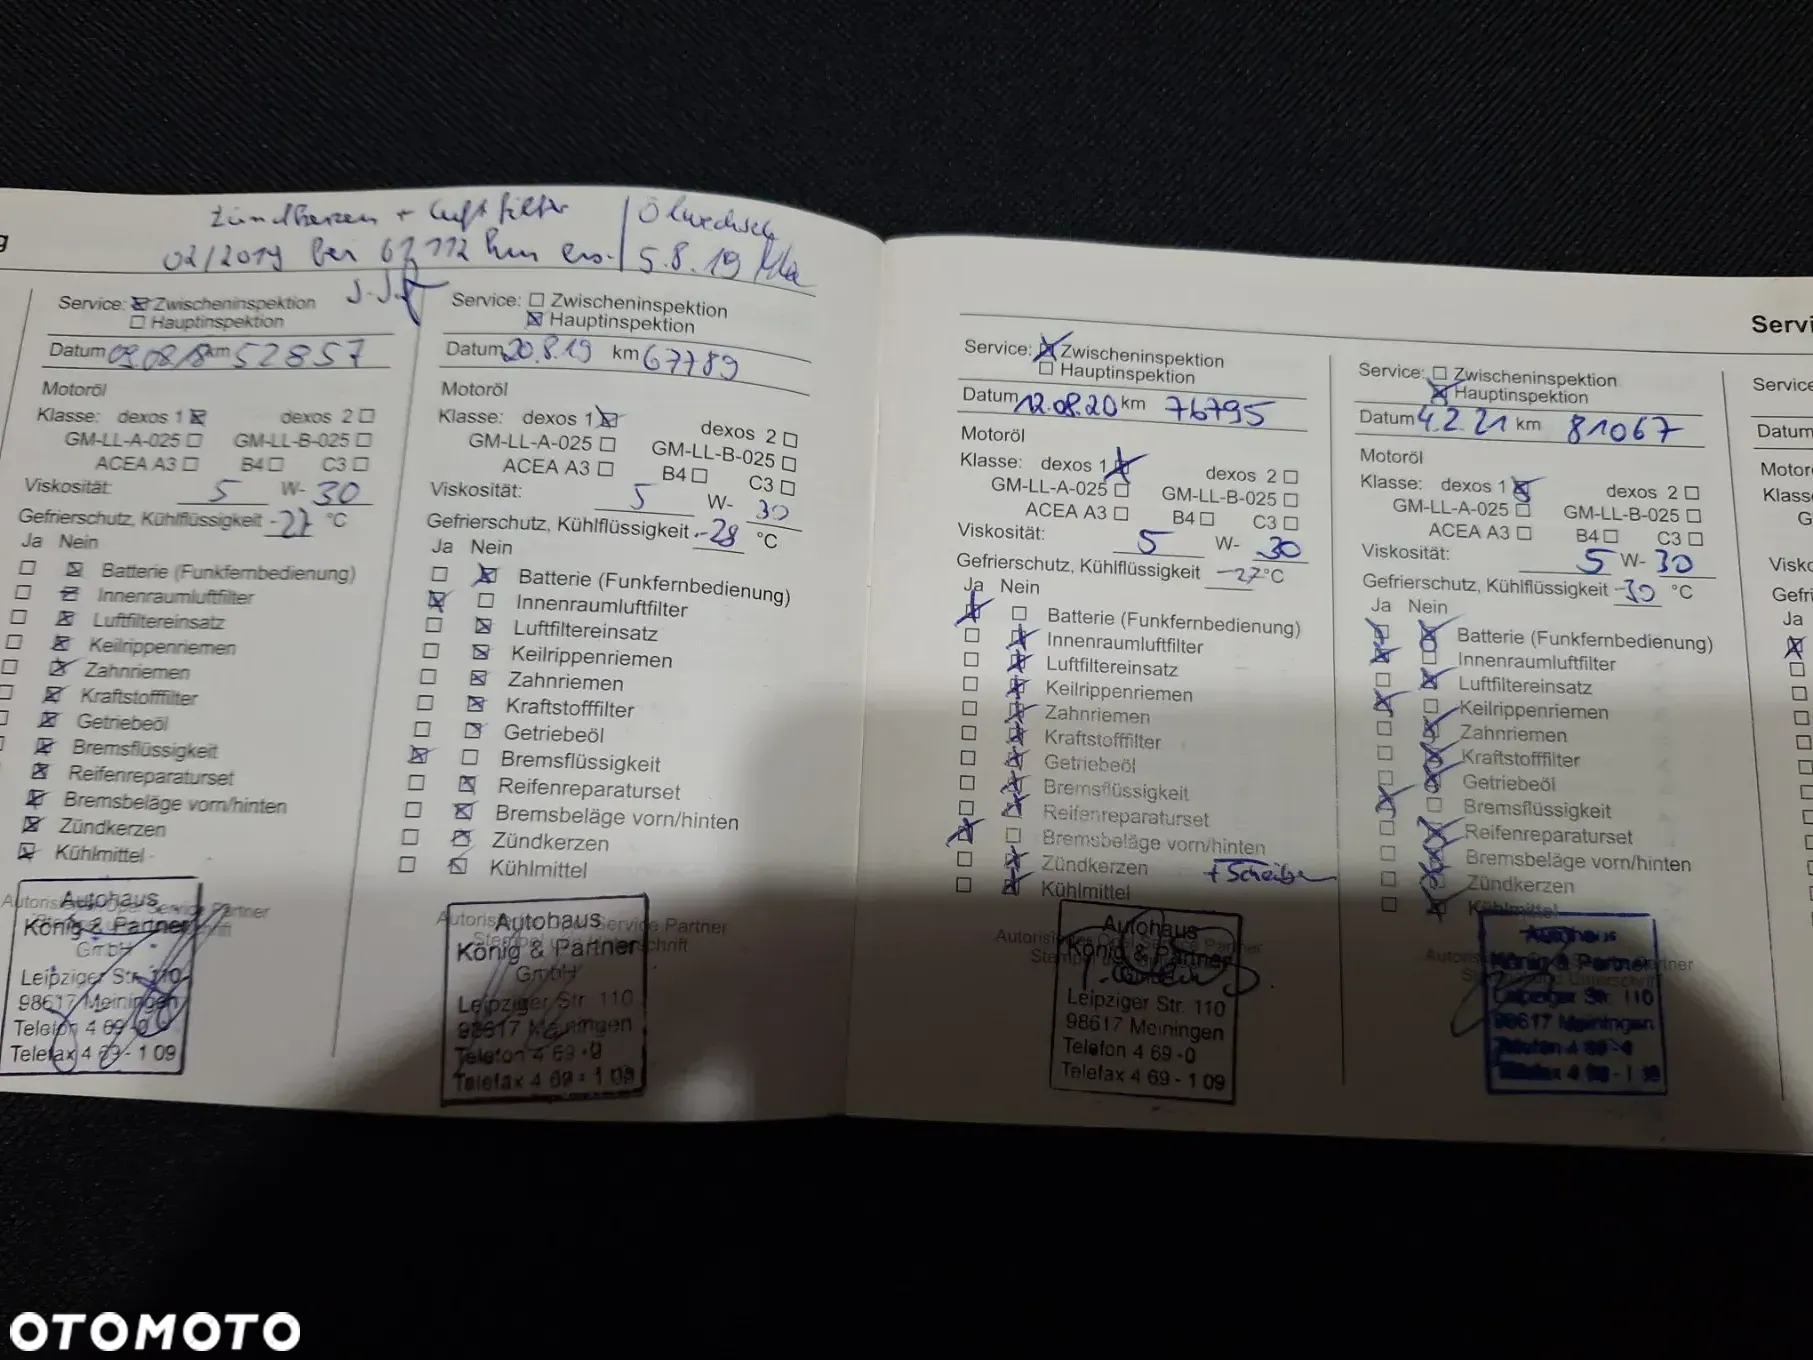 g
Zündkerzen + Luftfilter
02/2019 bei 62 112 km ern.
Ölwechsel
5.8.19
Service: Zwischeninspektion
Hauptinspektion
Datum 09.08.18 km 52857
Motoröl
Klasse: dexos 1 dexos 2
GM-LL-A-025 GM-LL-B-025
ACEA A3 B4 C3
Viskosität: 5 W- 30
Gefrierschutz, Kühlflüssigkeit -27 °C
Ja Nein
Batterie (Funkfernbedienung)
Innenraumluftfilter
Luftfiltereinsatz
Keilrippenriemen
Zahnriemen
Kraftstofffilter
Getriebeöl
Bremsflüssigkeit
Reifenreparaturset
Bremsbeläge vorn/hinten
Zündkerzen
Kühlmittel
Autohaus
König & Partner
GmbH
Leipziger Str. 110
98617 Meiningen
Telefon 4 69-0
Telefax 4 69-1 09
Service: Zwischeninspektion
Hauptinspektion
Datum 20.8.19 km 67789
Motoröl
Klasse: dexos 1 dexos 2
GM-LL-A-025 GM-LL-B-025
ACEA A3 B4 C3
Viskosität: 5 W- 30
Gefrierschutz, Kühlflüssigkeit -28 °C
Ja Nein
Batterie (Funkfernbedienung)
Innenraumluftfilter
Luftfiltereinsatz
Keilrippenriemen
Zahnriemen
Kraftstofffilter
Getriebeöl
Bremsflüssigkeit
Reifenreparaturset
Bremsbeläge vorn/hinten
Zündkerzen
Kühlmittel
Autohaus
König & Partner
GmbH
Leipziger Str. 110
98617 Meiningen
Telefon 4 69-0
Telefax 4 69-1 09
Servi
Service: Zwischeninspektion
Hauptinspektion
Datum 12.08.20 km 76795
Motoröl
Klasse: dexos 1 dexos 2
GM-LL-A-025 GM-LL-B-025
ACEA A3 B4 C3
Viskosität: 5 W- 30
Gefrierschutz, Kühlflüssigkeit -27 °C
Ja Nein
Batterie (Funkfernbedienung)
Innenraumluftfilter
Luftfiltereinsatz
Keilrippenriemen
Zahnriemen
Kraftstofffilter
Getriebeöl
Bremsflüssigkeit
Reifenreparaturset
Bremsbeläge vorn/hinten
Zündkerzen + Scheiben
Kühlmittel
Autohaus
König & Partner
GmbH
Leipziger Str. 110
98617 Meiningen
Telefon 4 69-0
Telefax 4 69-1 09
Service: Zwischeninspektion
Hauptinspektion
Datum 4.2.21 km 81067
Motoröl
Klasse: dexos 1 dexos 2
GM-LL-A-025 GM-LL-B-025
ACEA A3 B4 C3
Viskosität: 5 W- 30
Gefrierschutz, Kühlflüssigkeit -30 °C
Ja Nein
Batterie (Funkfernbedienung)
Innenraumluftfilter
Luftfiltereinsatz
Keilrippenriemen
Zahnriemen
Kraftstofffilter
Getriebeöl
Bremsflüssigkeit
Reifenreparaturset
Bremsbeläge vorn/hinten
Zündkerzen
Kühlmittel
Autohaus
König & Partner
Leipziger Str. 110
98617 Meiningen
Service
Datum
Motor
Klass
G
Visko
Gefri
Ja
OTOMOTO